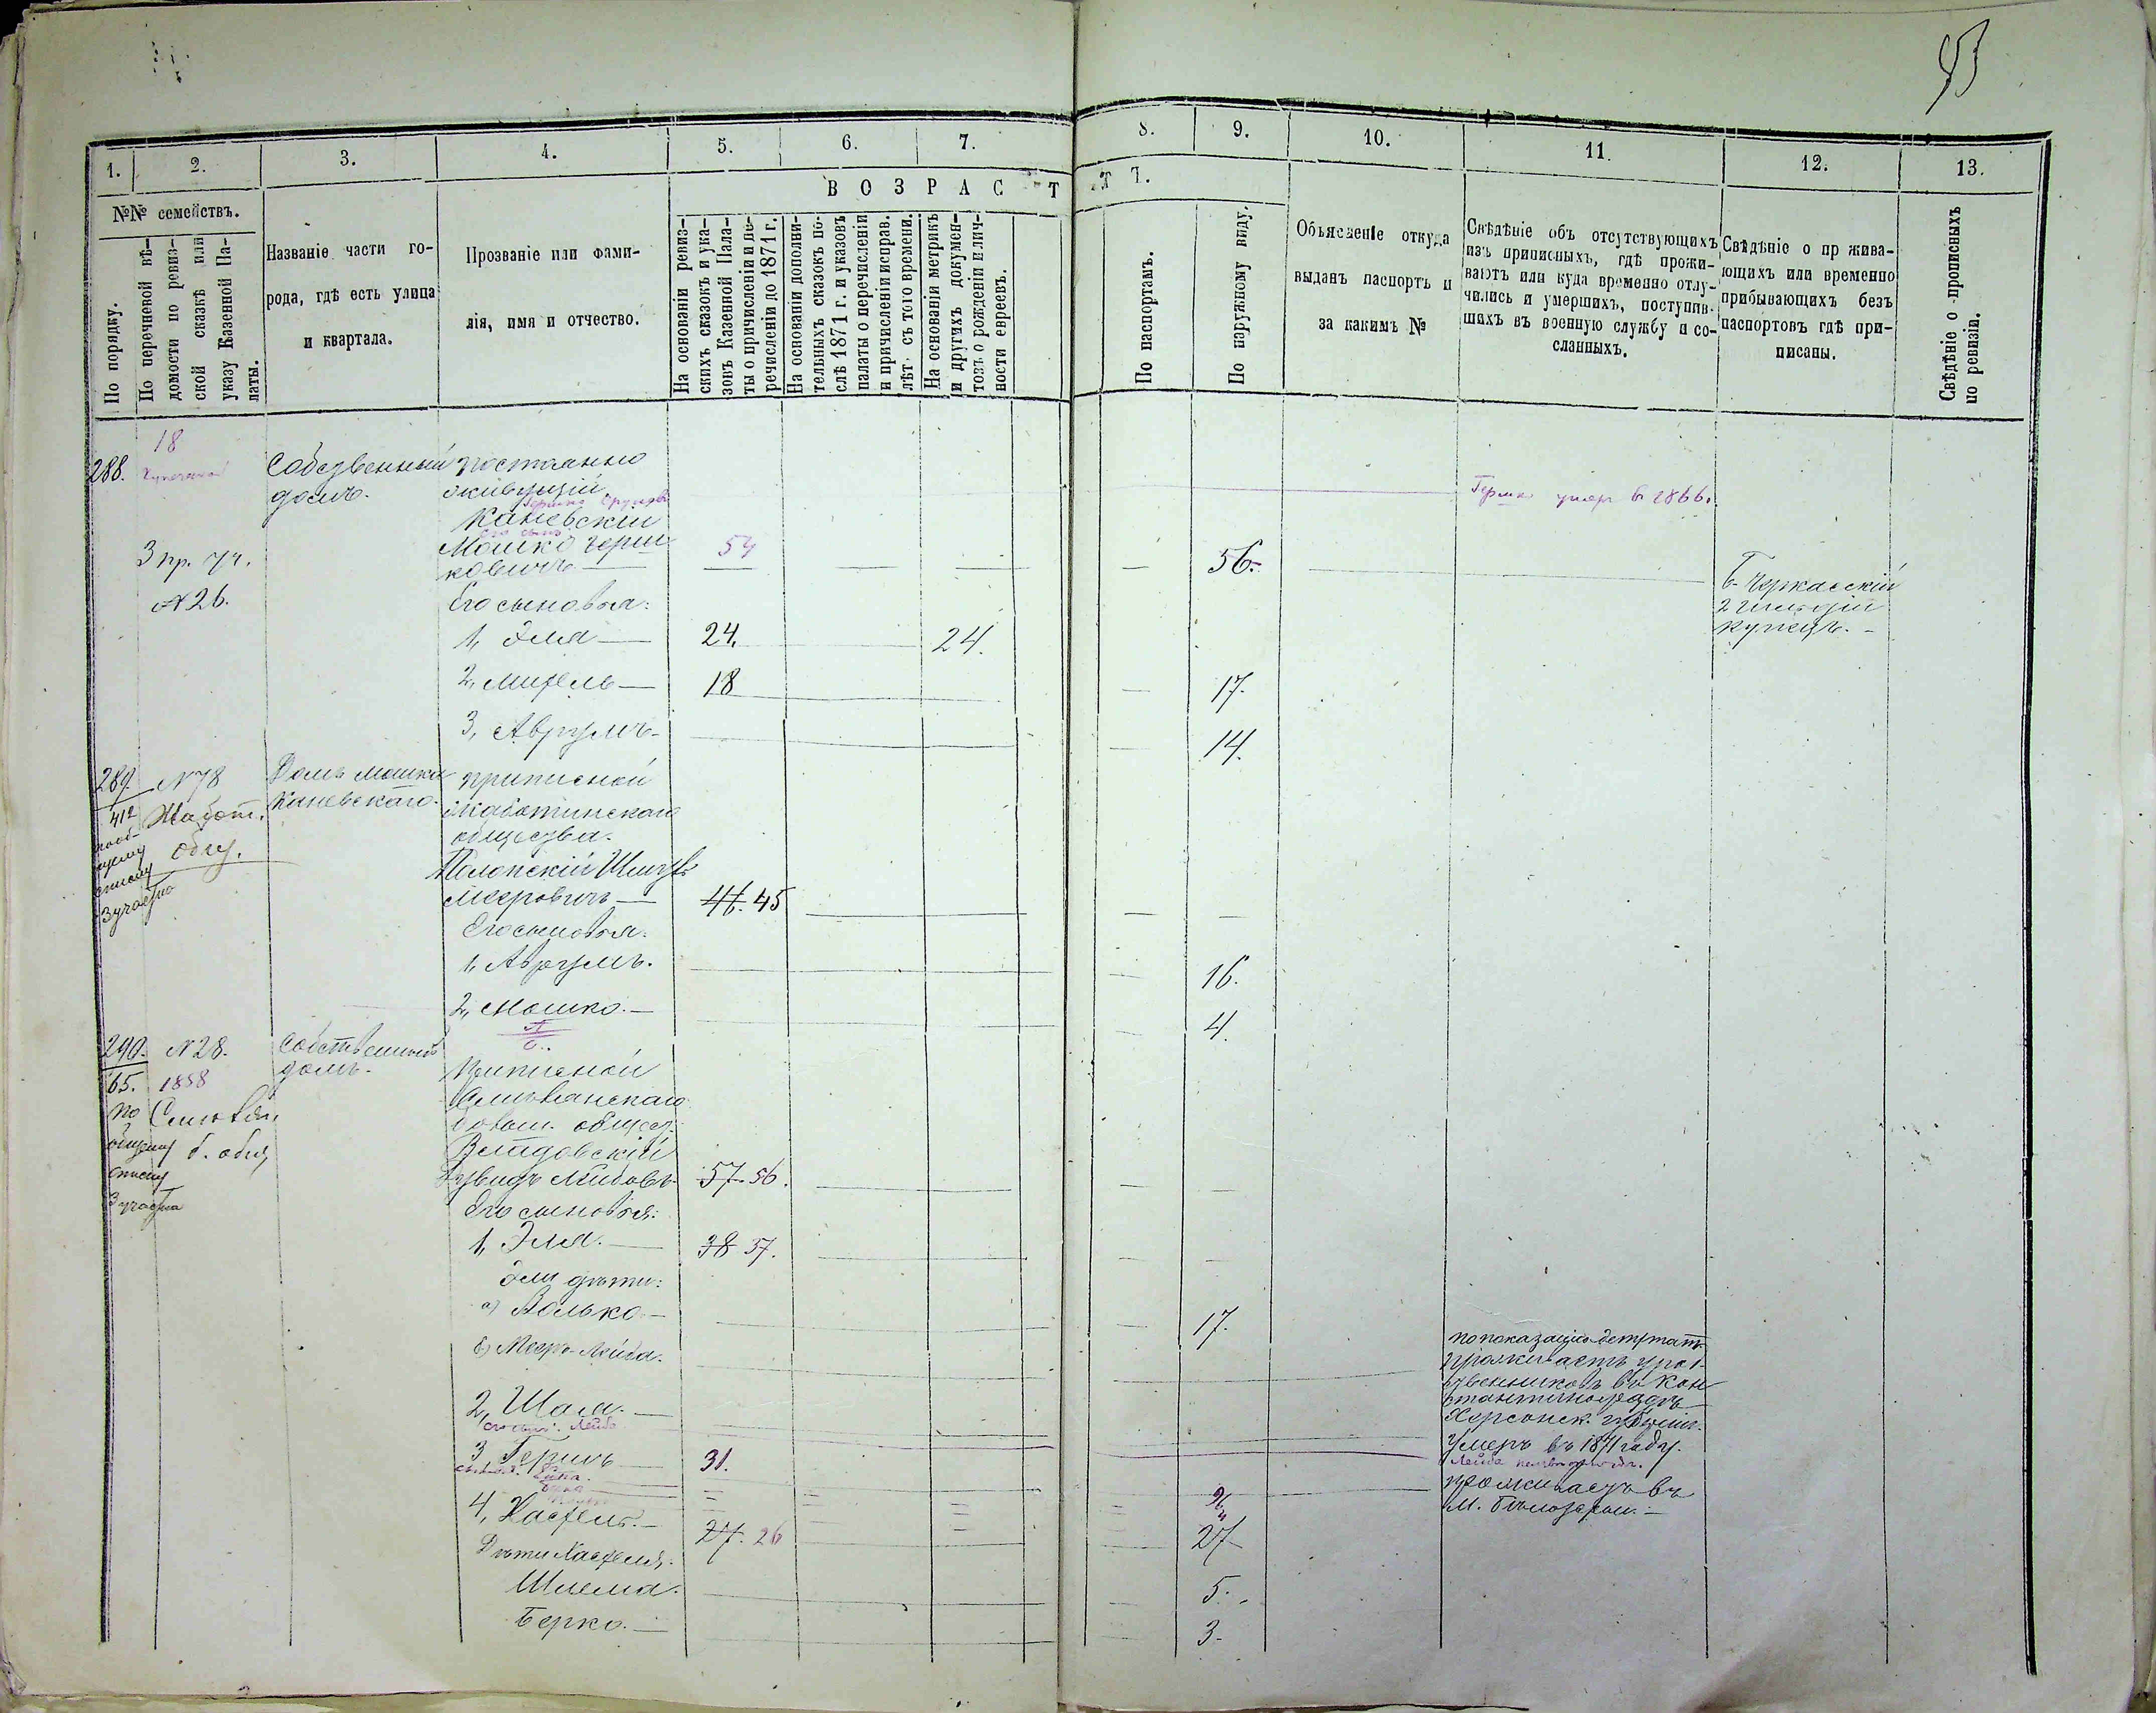 93
1.
2.
3.
4.
5.
6.
7.
8.
9.
10.
11.
12.
13.
№№ семействъ.
ВОЗРАСТ
ТЪ.
По порядку.
По перечневой вѣ-
домости по ревиз-
ской сказкѣ или
указу Казенной Па-
латы.
Названіе части го-
рода, гдѣ есть улица
и квартала.
Прозваніе или фами-
лія, имя и отчество.
На основаніи ревиз-
скихъ сказокъ и ука-
зовъ Казенной Пала-
ты о причисленіи и пе-
речисленіи до 1871 г.
На основаніи дополни-
тельныхъ сказокъ по-
слѣ 1871 г. и указовъ
палаты о перечисленіи
и причисленіи исправ.
лѣт. съ того времени.
На основаніи метрикъ
и другихъ докумен-
товъ о рожденіи и лич-
ности евреевъ.
По паспортамъ.
По наружному виду.
Объясненіе откуда
выданъ паспортъ и
за какимъ №
Свѣдѣніе объ отсутствующихъ
изъ приписныхъ, гдѣ прожи-
ваютъ или куда временно отлу-
чились и умершихъ, поступив-
шихъ въ военную службу и со-
сланныхъ.
Свѣдѣніе о пр жива-
ющихъ или временно
прибывающихъ безъ
паспортовъ гдѣ при-
писаны.
Свѣдѣніе о прописныхъ
по ревизіи.
288.
18
Собственный
домъ.
постоянно
живущій
Каневскій
Гершко умер в 1866.
его сынъ
Мошко Герш
ковичъ —
54
56.
3 пр. уч.
№ 26.
Б. Черкасскій
2 гильдіи
купецъ. -
Его сыновья:
1, Эля — 24. 24.
2, Михель — 18 17.
3, Аврумъ - 14.
289 № 78 Домъ Мошки приписной
412 Жабот. Каневскаго. Жаботинскаго
общества.
общ.
3 участка
Полонскій
Мееровичъ — 46. 45
Его сыновья.
1, Аврумъ. 16.
2, Мошко. — 4.
290. № 28. Собственный
65. 1858 домъ. Приписной
по
общему б. общ.
списку
3 участка
Лейбовъ 57. 56.
Его сыновья:
1, Эля. — 38 37.
Эли дѣти:
а) Волько — 17.
б) Мееръ-Лейба.
по показанію
проживаетъ у род-
ственниковъ въ Кон
стантиноградѣ
Херсонск. губерніи.
2, Шая. —
его сынъ Лейба
Умеръ въ 1871 году.
3 Гершъ — 31.
проживаетъ въ
4, Хаскель. — 27. 26 27
Дѣти Хаскеля.
Шлема. 5.
Берко. — 3.